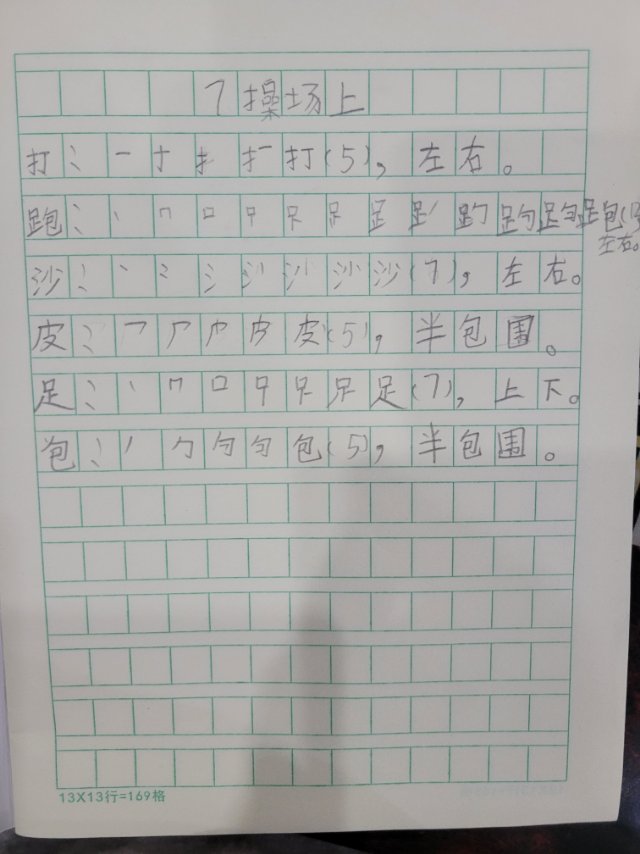 7操场上
打：一 十 扌 扩 打(5)，左右。
跑：丶 冖 口 甲 足 足 足 趵 趵 跑
左右。
沙：丶 冫 氵 沙 沙(7)，左右。
皮：乛 厂 广 皮 皮(5)，半包围。
足：丶 冖 口 甲 足 足 足(7)，上下。
包：丿 勹 勺 句 包(5)，半包围。
13X13行=169格